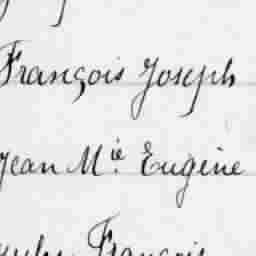 François Joseph
Jean M.ie Eugène
François